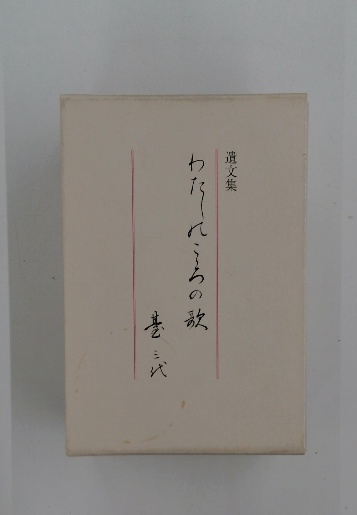 遺文集
わたしのこころの歌
臺 三代